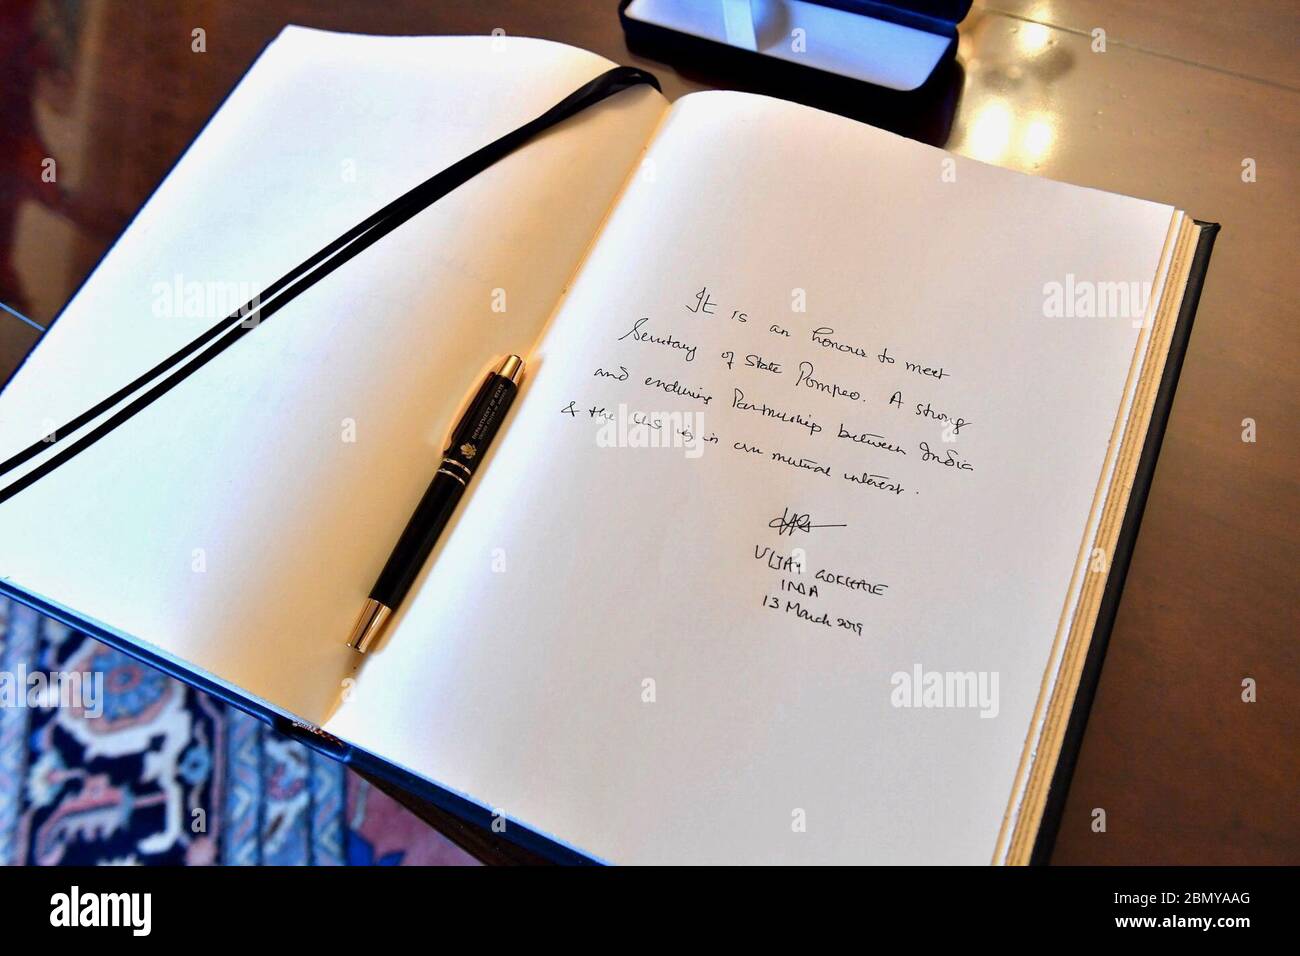 It is an honour to meet
Secretary of State Pompeo. A strong
and enduring Partnership between India
& the U.S is in our mutual interest.
VIJAY GOKHALE
INDIA
13 March 2019
DEPARTMENT OF STATE
UNITED STATES OF AMERICA
alamy
alamy
alamy
alamy
Image ID: 2BMYAAG
www.alamy.com